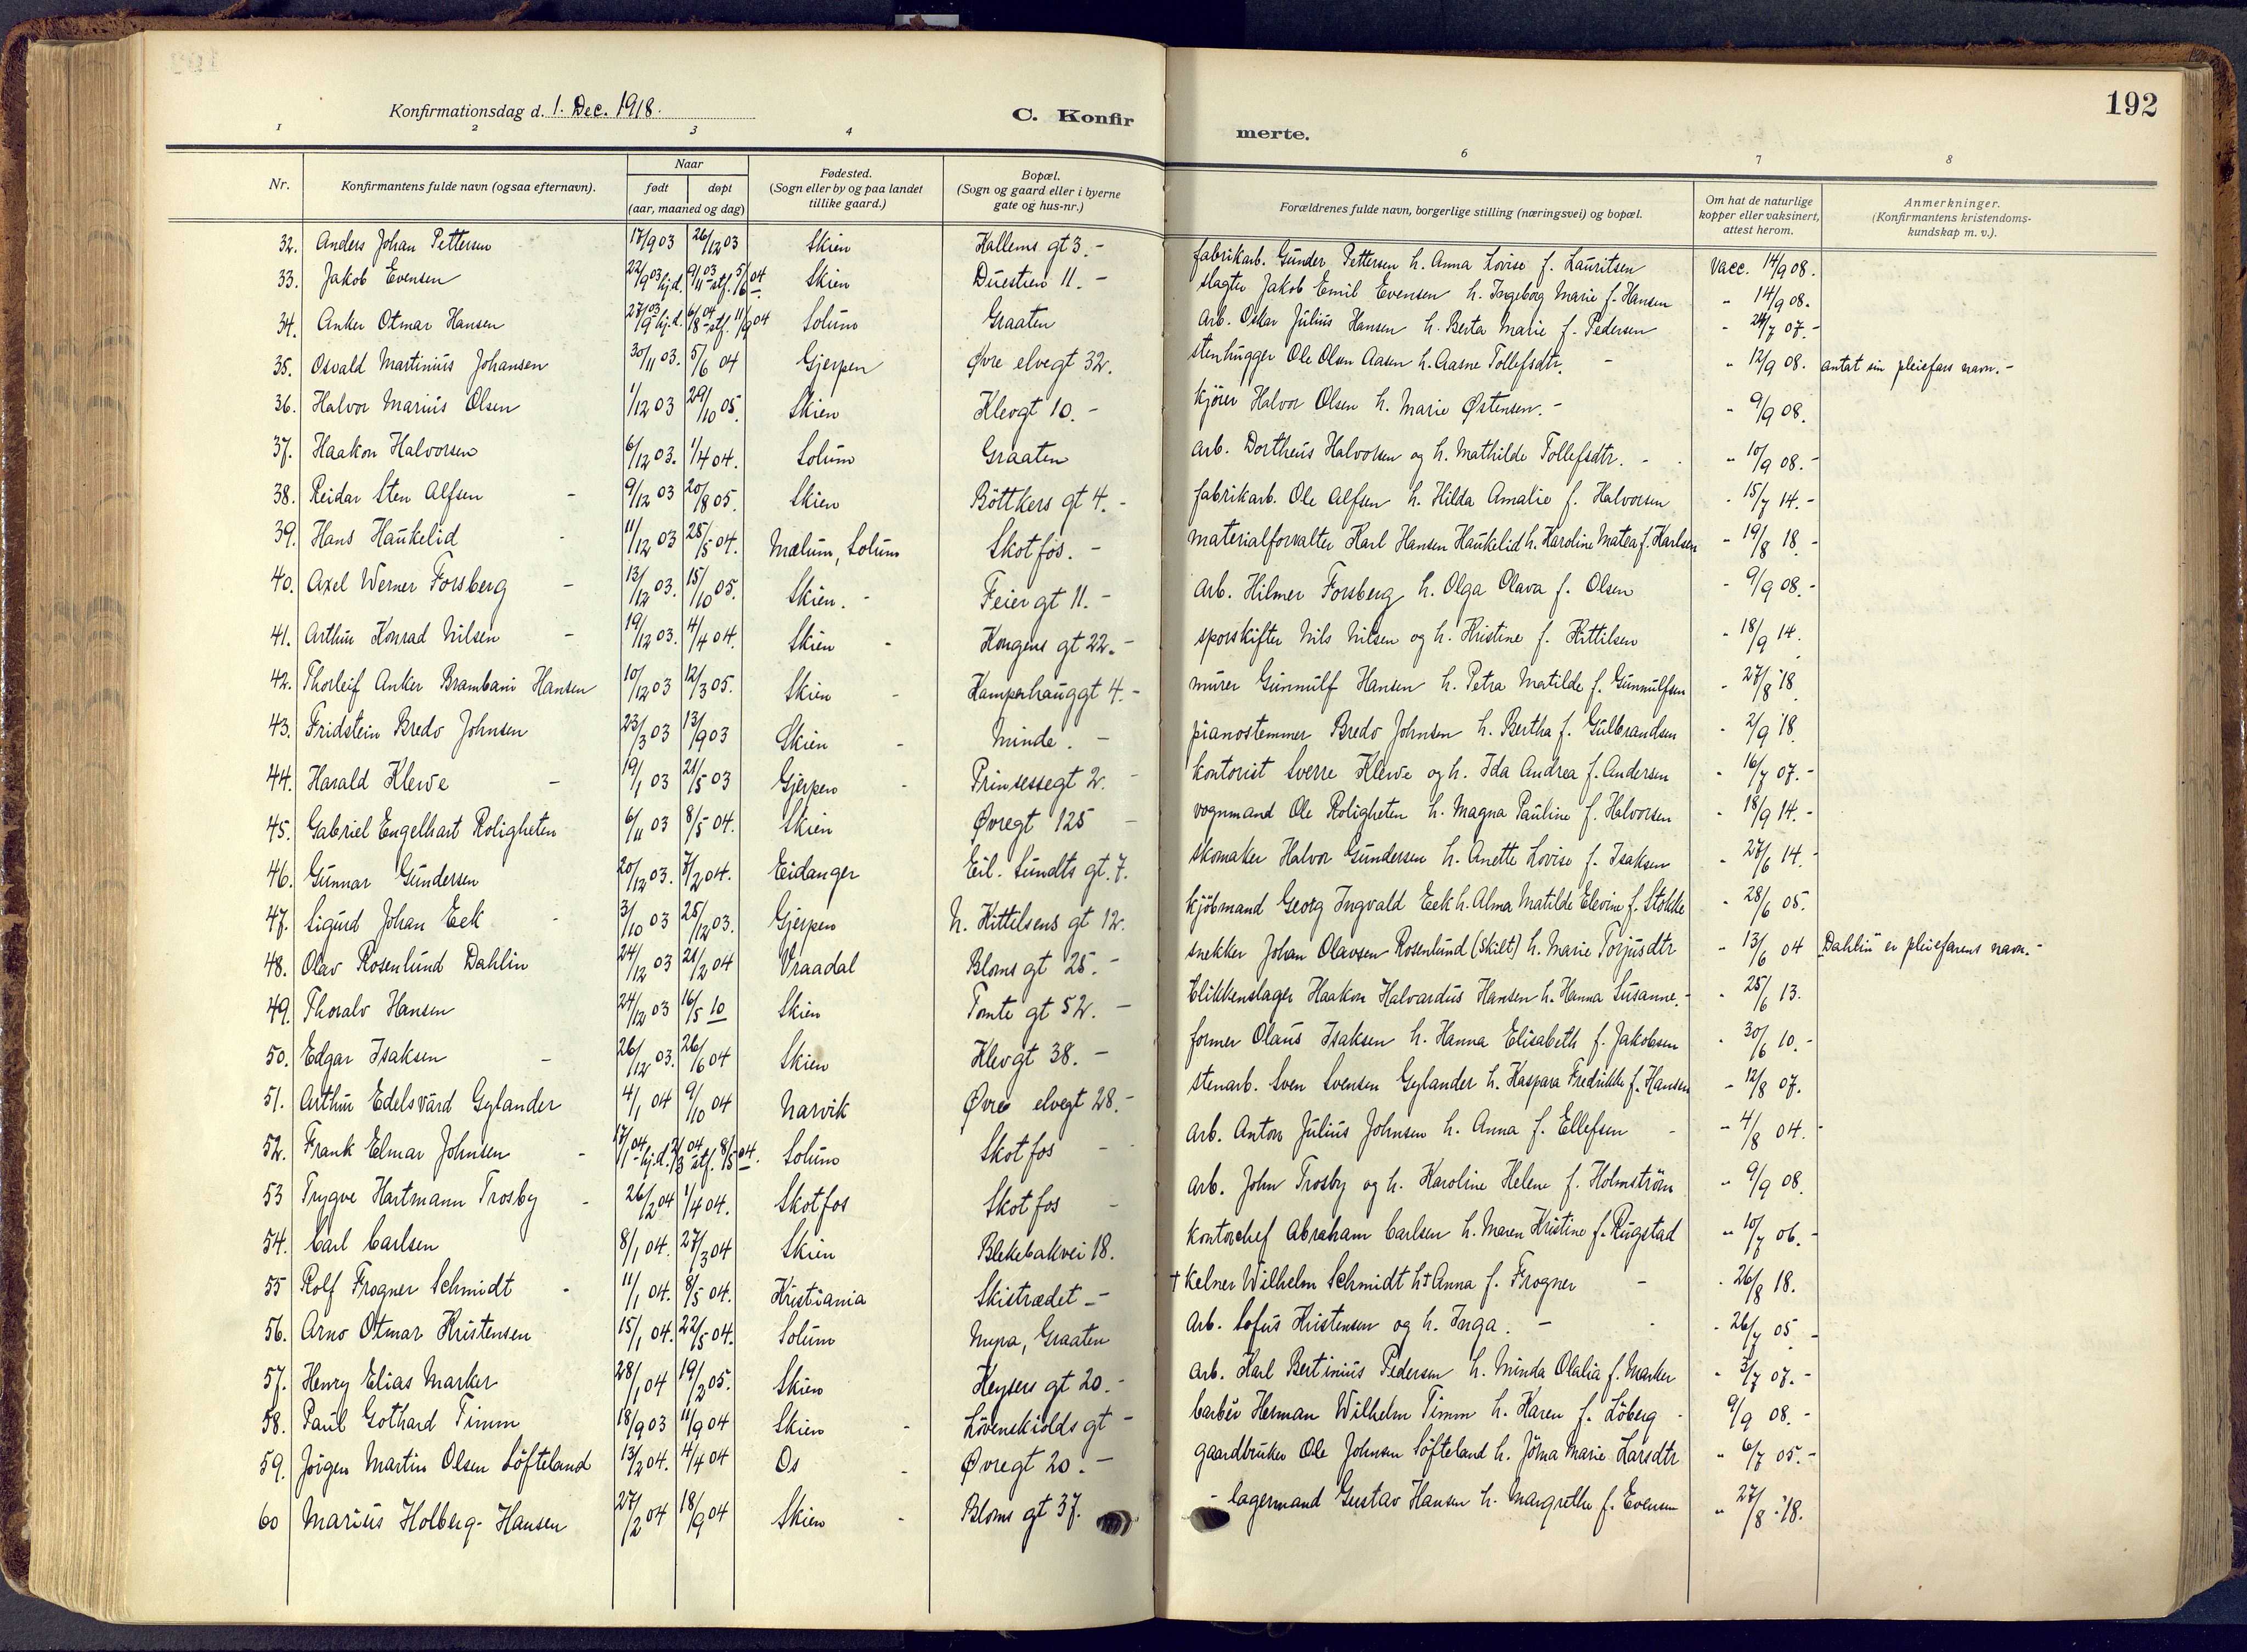 192
Konfirmationsdag d. 1. Dec. 1918.
C. Konfirmerte.
1 2 3 4 6 7 8
Nr. Konfirmantens fulde navn (ogsaa efternavn). Naar født døpt (aar, maaned og dag) Fødested. (Sogn eller by og paa landet tillike gaard.) Bopæl. (Sogn og gaard eller i byerne gate og hus-nr.) Forældrenes fulde navn, borgerlige stilling (næringsvei) og bopæl. Om hat de naturlige kopper eller vaksinert, attest herom. Anmerkninger. (Konfirmantens kristendomskundskap m. v.).
32. Anders Johan Pettersen 17/9 03 26/12 03 Skien Hallems gt 3. - fabrikarb. Gunder Pettersen h. Anna Lovise f. Lauritsen Vacc. 14/9 08.
33. Jakob Evensen 22/9 03 hj.d. 9/11 03 stf. 5/6 04 Skien Duestien 11. - slagter Jakob Emil Evensen h. Ingeborg Marie f. Hansen " 14/9 08.
34. Anker Otmar Hansen 27/9 03 hj.d. 6/8 04 stf. 11/9 04 Solum Graaten arb. Oskar Julius Hansen h. Berta Marie f. Pedersen " 24/7 07. -
35. Osvald Martinius Johansen 30/11 03. 5/6 04 Gjerpen Øvre elvegt 32. stenhugger Ole Olsen Aasen h. Aasne Tollefsdtr. - " 12/9 08. antat sin pleiefars navn. -
36. Halvor Marius Olsen 1/12 03 29/10 05. Skien Klevgt 10. - kjører Halvor Olsen h. Marie Østensen. - " 9/9 08.
37. Haakon Halvorsen 6/12 03. 1/4 04. Solum Graaten arb. Dortheus Halvorsen og h. Mathilde Tollefsdtr. - " 10/9 08. -
38. Reidar Sten Alfsen - 9/12 03 20/8 05. Skien Böttkers gt 4. - fabrikarb. Ole Alfsen h. Hilda Amalie f. Halvorsen " 15/7 14. -
39. Hans Haukelid - 11/12 03 28/5 04. Mælum, Solum Skotfos. - materialforvalter Karl Hansen Haukelid h. Karoline Matea f. Karlsen " 19/8 18. -
40. Axel Werner Forsberg - 13/12 03. 15/10 05. Skien. - Feiergt 11. - arb. Hilmer Forsberg h. Olga Olava f. Olsen " 9/9 08. -
41. Arthur Konrad Nilsen - 19/12 03. 4/4 04. Skien - Kongens gt 22. - sporskifter Nils Nilsen og h. Kristine f. Kittilsen " 18/9 14.
42. Thorleif Anker Brambani Hansen 10/12 03 12/3 05. Skien - Kamperhauggt 4. - murer Gunnulf Hansen h. Petra Matilde f. Gunnulfsen " 27/8 18
43. Fridstein Bredo Johnsen 23/3 03 13/9 03 Skien - Minde. - pianostemmer Bredo Johnsen h. Bertha f. Gulbrandsen " 2/9 18.
44. Harald Klewe - 19/1 03 21/5 03 Gjerpen - Prinsessegt 2. - kontorist Sverre Klewe og h. Ida Andrea f. Andersen " 16/7 07. -
45. Gabriel Engelhart Roligheten 6/11 03 8/5 04. Skien Øvregt 125 - vognmand Ole Roligheten h. Magna Pauline f. Halvorsen " 18/9 14. -
46. Gunnar Gundersen 20/12 03. 7/2 04. Eidanger Eil. Sundts gt. 7. skomaker Halvor Gundersen h. Anette Lovise f. Isaksen " 27/6 14. -
47. Sigurd Johan Eek - 3/10 03 25/12 03. Gjerpen N. Kittilsens gt 12. kjöbmand Georg Ingvald Eek h. Alma Matilde Elevine f. Stokke " 28/6 05.
48. Olav Rosenlund Dahlin 24/12 03 21/2 04 Vraadal Bloms gt 25. - snekker Johan Olavsen Rosenlund (Skilt) h. Marie Torjusdtr " 13/6 04 "Dahlin" er pleiefarens navn. -
49. Thoralv Hansen 24/12 03 16/5 10 Skien Tomte gt 52. - blikkenslager Haakon Halvardus Hansen h. Hanna Susanne. - " 25/6 13.
50. Edgar Isaksen - 26/12 03. 26/6 04 Skien Klevgt 38. - former Olaus Isaksen h. Hanna Elisabeth f. Jakobsen " 30/6 10. -
51. Arthur Edelsvärd Gylander 4/1 04 9/10 04 Narvik Øvre elvegt 28. - stenarb. Sven Svensen Gylander h. Kaspara Fredrikke f. Hansen " 12/8 07.
52. Frank Elmar Johnsen - 17/1 04 hj.d. 2/3 04 stf. 8/5 04. Solum Skotfos - arb. Anton Julius Johnsen h. Anna f. Ellefsen - " 4/8 04. -
53 Trygve Hartmann Trosby - 26/2 04 1/4 04. Skotfos Skotfos - arb. John Trosby og h. Karoline Helene f. Holmström " 9/9 08.
54. Carl Carlsen 8/1 04. 27/3 04 Skien Blekebakvei 18. kontorchef Abraham Carlsen h. Maren Kristine f. Rugstad " 10/7 06. -
55 Rolf Frogner Schmidt - 11/1 04. 8/5 04. Kristiania Skistrædet - † kelner Wilhelm Schmidt h † Anna f. Frogner - " 26/8 18.
56. Arno Otmar Kristensen 15/1 04. 22/5 04. Solum Myra, Graaten arb. Sofus Kristensen og h. Inga. - " 26/7 05 -
57. Henry Elias Marker 28/1 04 19/2 05. Skien Keysers gt 20. - arb. Karl Bertinius Pedersen h. Minda Olalia f. Marker " 3/7 07. -
58. Paul Gothard Timm 18/9 03 11/9 04 Skien - Lövenskiolds gt - barber Herman Wilhelm Timm h. Karen f. Löberg - 9/9 08. -
59. Jörgen Martin Olsen Löfteland 13/2 04. 4/4 04 Os - Øvregt 20. - gaardbruker Ole Johnsen Löfteland h. Jöma Marie Larsdtr " 6/7 05. -
60 Marius Holberg-Hansen 27/2 04 18/9 04 Skien - Bloms gt 37. - lagermand Gustav Hansen h. Margrethe f. Evensen " 27/8 18.